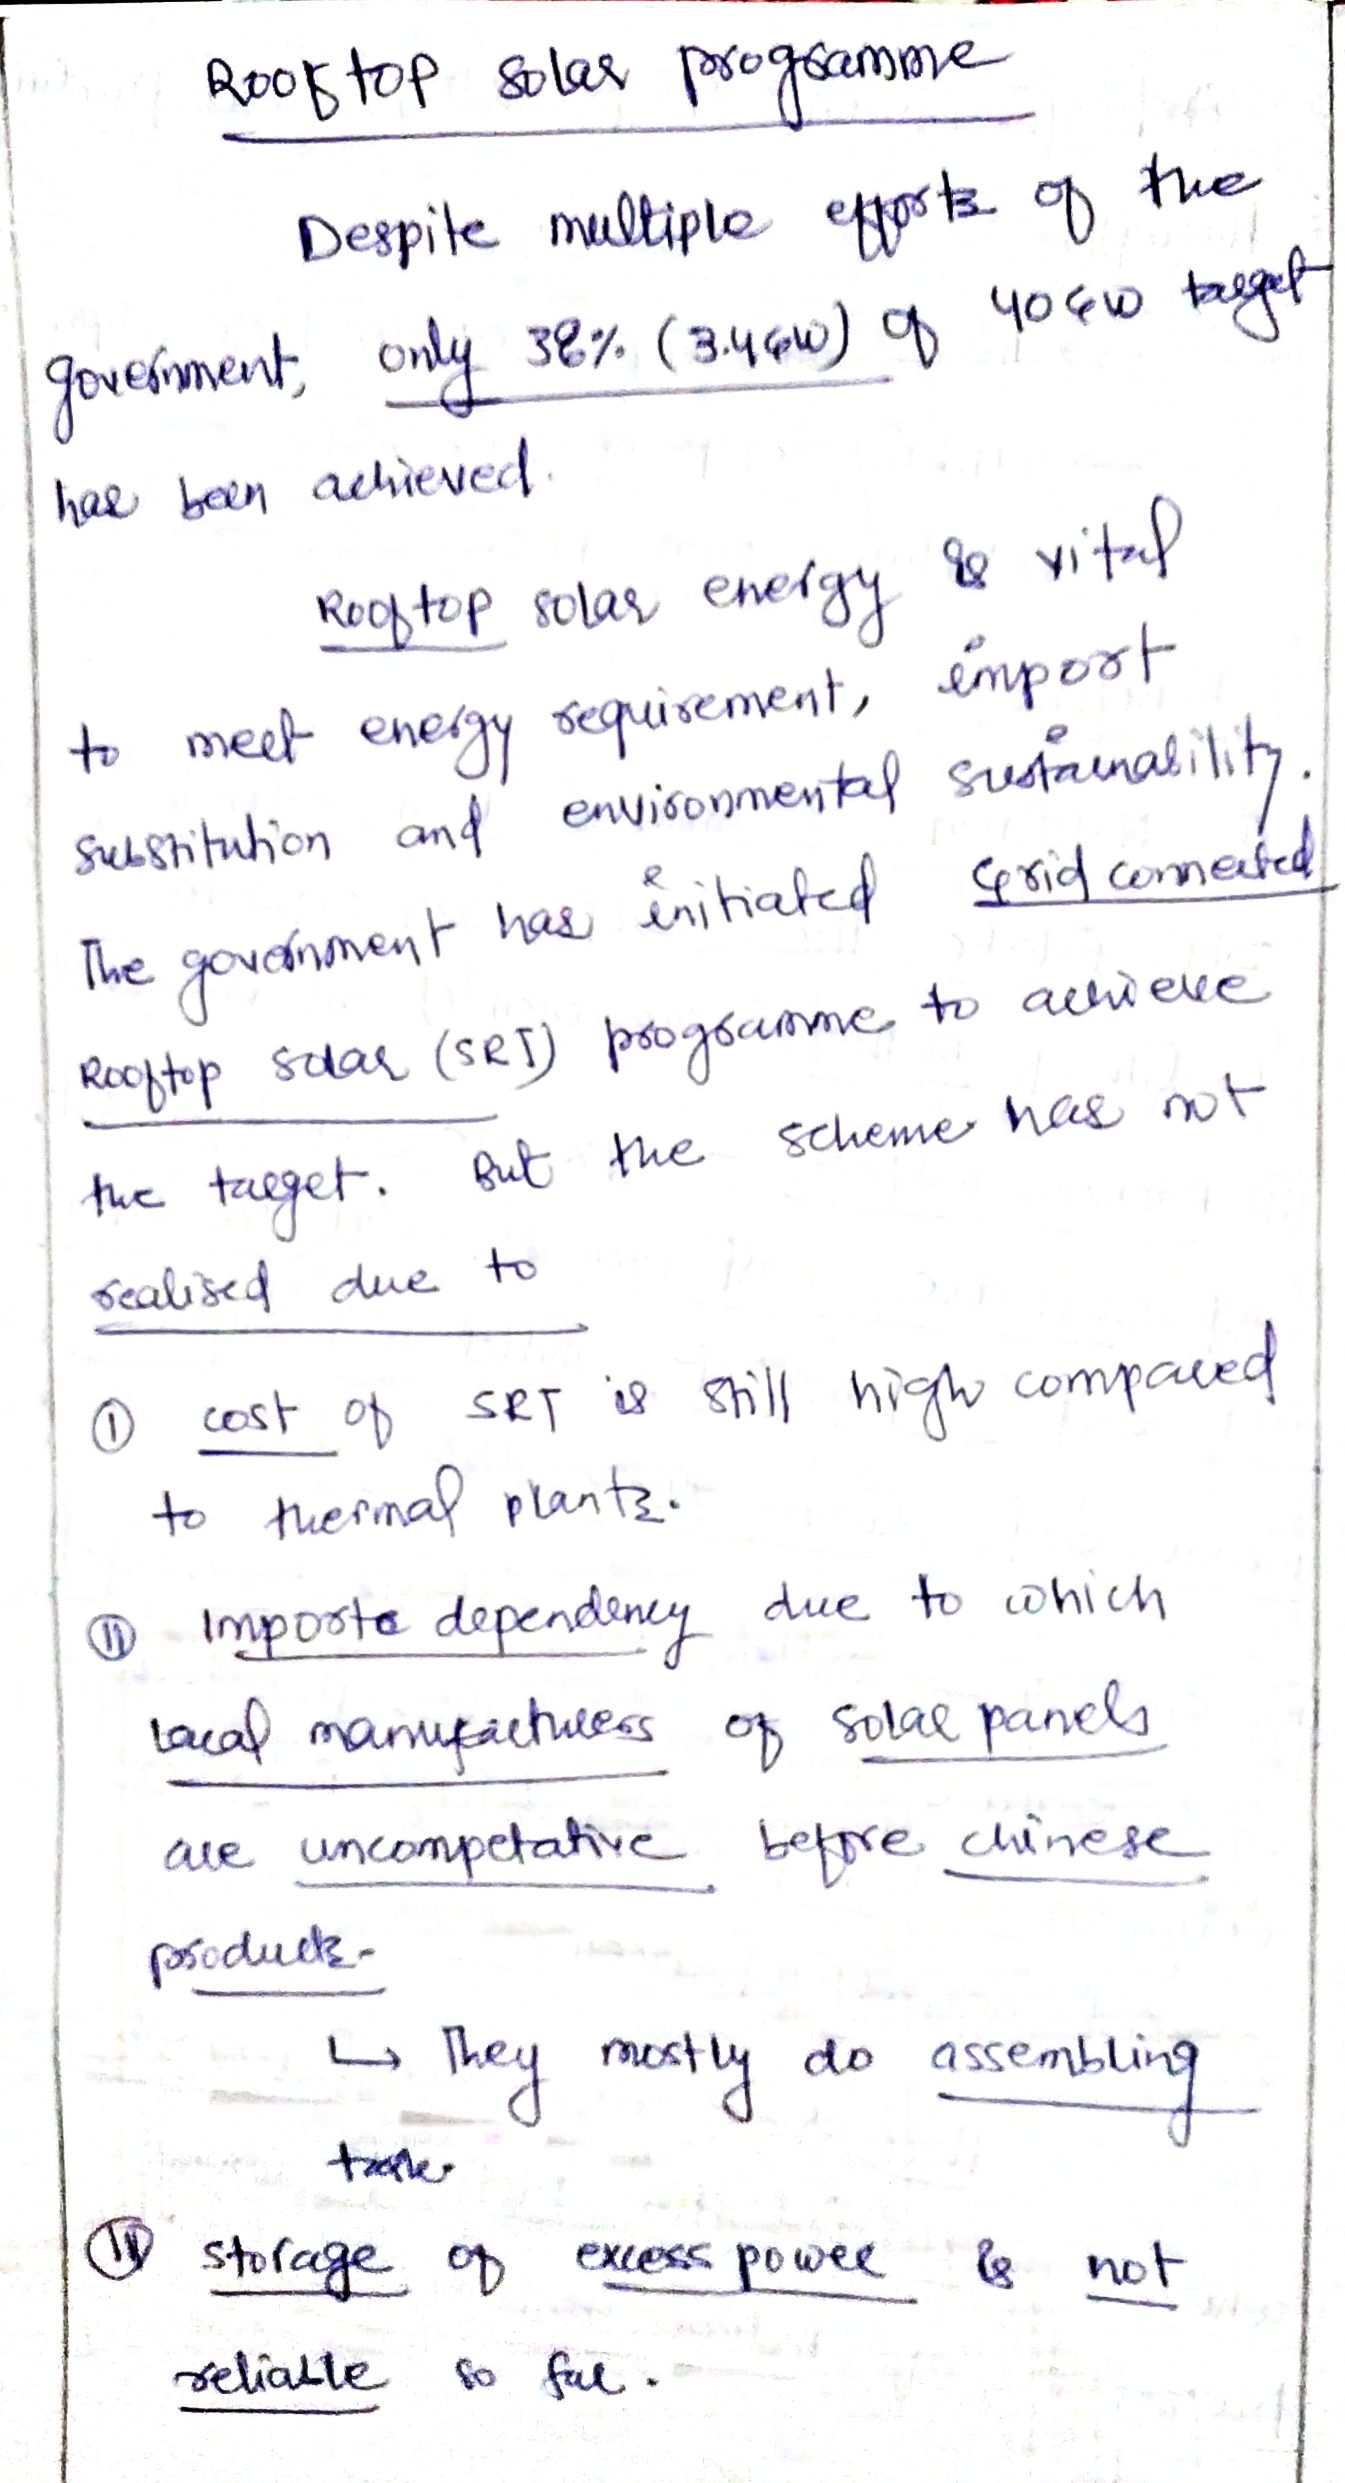 Rooftop solar programme
Despite multiple efforts of the
government, only 38% (3.4GW) of 40GW target
has been achieved.
Rooftop solar energy is vital
to meet energy requirement, import
substitution and environmental sustainability.
The government has initiated Grid connected
Rooftop Solar (SRT) programme to achieve
the target. But the scheme has not
realised due to
① cost of SRT is still high compared
to thermal plants.
② Importe dependency due to which
local manufacturers of solar panels
are uncompetative before chinese
products.
↳ They mostly do assembling
task.
③ storage of excess power is not
reliable so far.